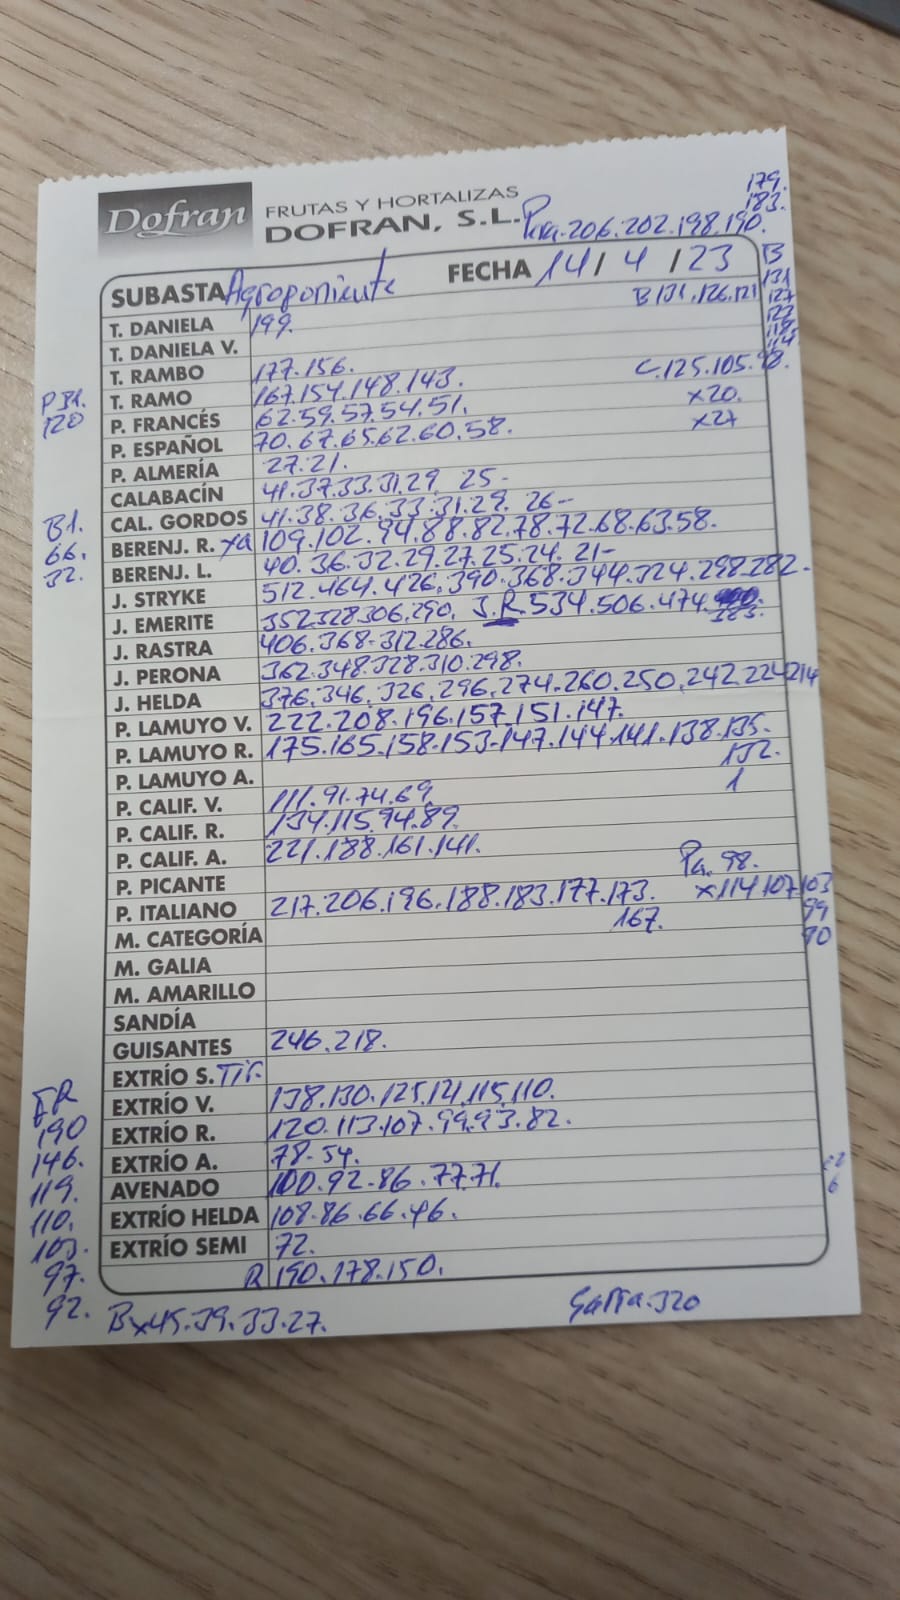 179.
183.
Dofran FRUTAS Y HORTALIZAS
DOFRAN, S.L. Pera.206.202.198.190.
SUBASTA Agroponiente FECHA 14/4/23 B
B 131.126.121 131
T. DANIELA 199. 127
T. DANIELA V.
T. RAMBO 177.156. C.125.105.98.
P31. T. RAMO 167.154.148.143. x20.
120 P. FRANCÉS 62.59.57.54.51. x27
P. ESPAÑOL 70.67.65.62.60.58.
P. ALMERÍA 27.21.
CALABACÍN 41.37.33.31.29. 25-
B1. CAL. GORDOS 41.38.36.33.31.29. 26-
66. BERENJ. R. xa 109.102.94.88.82.78.72.68.63.58.
32. BERENJ. L. 40.36.32.29.27.25.24. 21-
J. STRYKE 512.464.426.390.368.344.324.298.282-
J. EMERITE 352.328.306.290. J.R.534.506.474.
383.
J. RASTRA 406.368-312.286.
J. PERONA 362.348.328.310.298.
J. HELDA 376.346.326.296.274.260.250.242.224214
P. LAMUYO V. 222.208.196.157.151.147.
P. LAMUYO R. 175.165.158.153-147.144.141.138.135.
132.
P. LAMUYO A. 1
P. CALIF. V. 111.91.74.69.
P. CALIF. R. 134.115.94.89.
P. CALIF. A. 221.188.161.141.
P. PICANTE Pa. 98.
P. ITALIANO 217.206.196.188.183.177.173. x114.107.103
M. CATEGORÍA 167. 99
90
M. GALIA
M. AMARILLO
SANDÍA
GUISANTES 246.218.
EXTRÍO S. TIT.
EXTRÍO V. 138.130.125.121.115.110.
190 EXTRÍO R. 120.113.107.99.93.82.
146. EXTRÍO A. 78-54.
119. AVENADO 100.92-86.77.71.
110. EXTRÍO HELDA 108.86.66.46.
103. EXTRÍO SEMI 72.
97. R 190.178.150.
92. Bx45.39.33.27. Garra.320